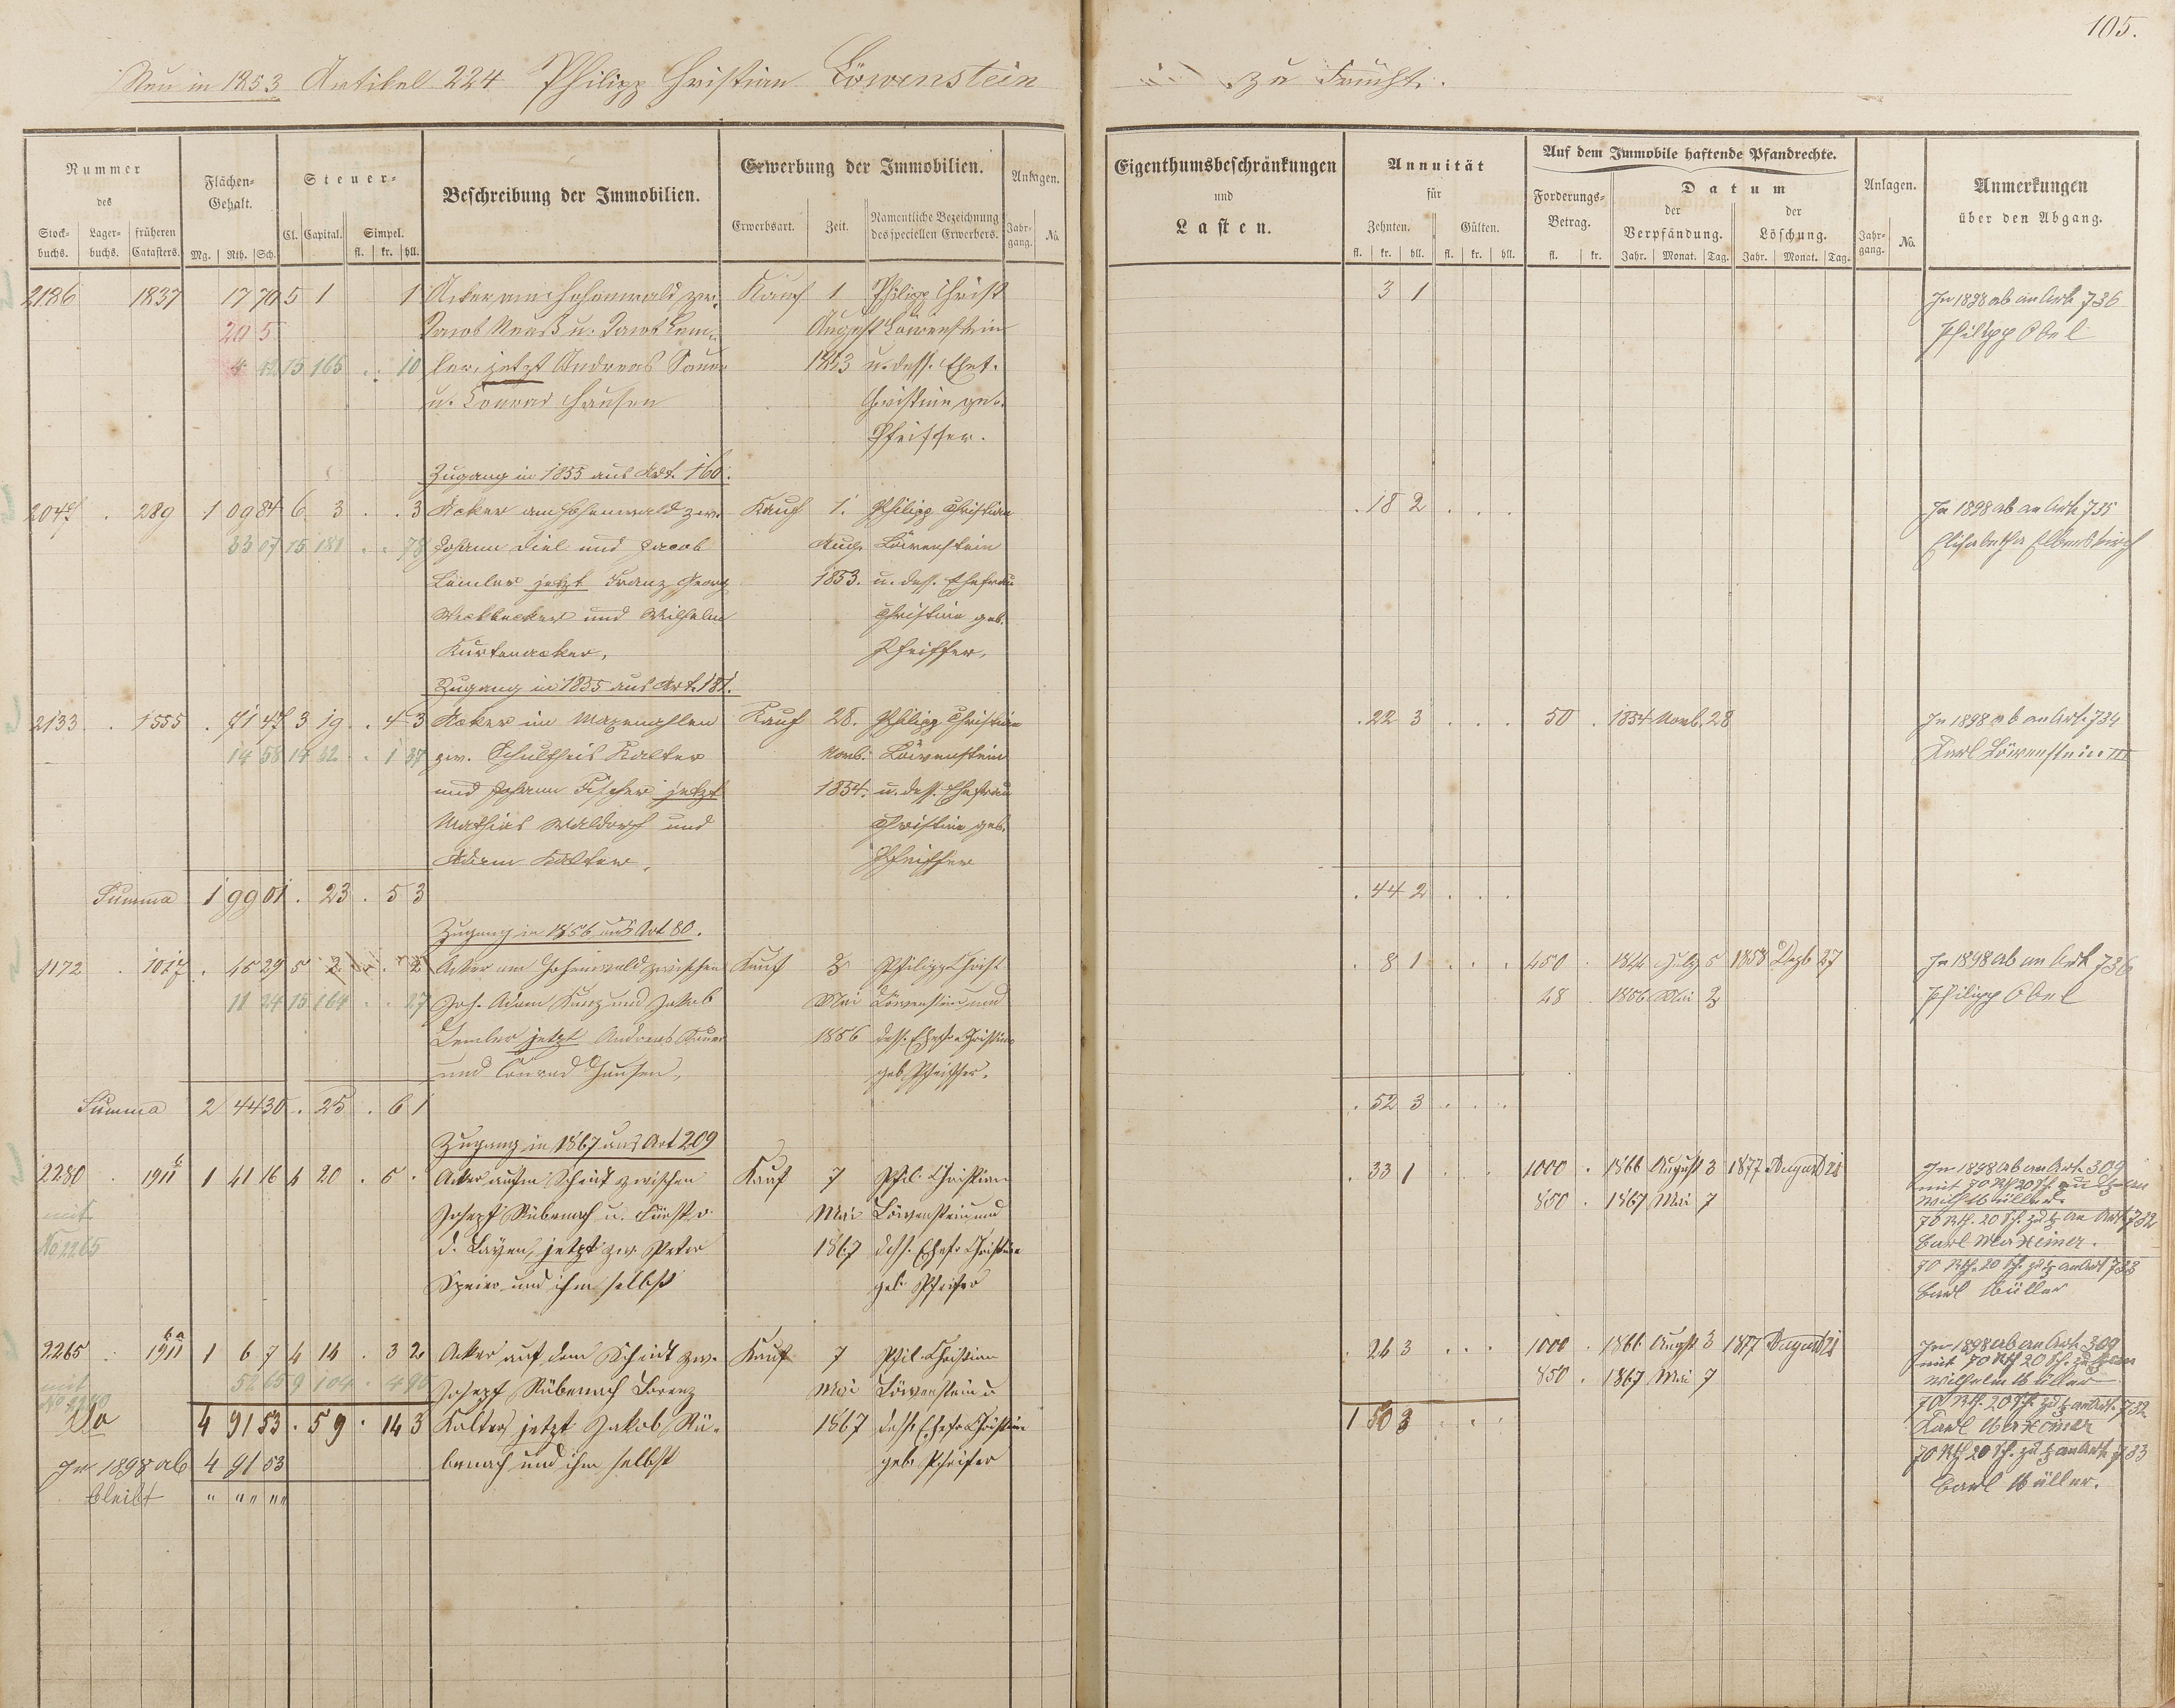 105.
Neu in 1853 Artikel 224 Philipp Christian Löwenstein
zu Frücht.
Nummer
des
Stock-
buchs.
Lager-
buchs.
früheren
Catasters.
Flächen-
Gehalt.
Mg. Rth. Sch.
Steuer-
Cl. Capital. Simpel.
fl. kr. hll.
Beschreibung der Immobilien.
Erwerbung der Immobilien.
Erwerbsart. Zeit. Namentliche Bezeichnung
des speciellen Erwerbers.
Anlagen.
Jahr-
gang. No.
Eigenthumsbeschränkungen
und
Lasten.
Annuität
für
Zehnten. Gülten.
fl. kr. hll. fl. kr. hll.
Auf dem Immobile haftende Pfandrechte.
Forderungs-
Betrag.
fl. kr.
Datum
der
Verpfändung.
der
Löschung.
Jahr. Monat. Tag. Jahr. Monat. Tag.
Anlagen.
Jahr-
gang. No.
Anmerkungen
über den Abgang.
2186 1837 17 70 5 1 1 Acker am Hohenwald zw. Kauf 1 Philipp Christ 3 1 In 1898 ab an Art. 736
20 5 Jacob u. Jacob Lem- August Löwenstein Philipp Obel
15 165 10 ler, jetzt Andreas Sauer 1853 u. dess. Ehef.
u. Conrad Hausen Christine geb.
Pfeiffer.
Zugang in 1855 aus Art. 160.
2047 . 289 1 09 84 6 3 . . 3 Acker am Hohenwald zw. Kauf 1. Philipp Christian . 18 2 . . . In 1898 ab an Art. 735
33 07 15 181 . . 78 Johann Diel und Jacob Aug. Löwenstein Elisabetha
Lemler jetzt Franz Georg 1853. u. dess. Ehefrau
Weckbecker und Wilhelm Christine geb.
Kurtenacker. Pfeiffer.
Zugang in 1855 aus Art. 181.
2133 . 1555 . 71 47 3 19 . 4 3 Acker im Kauf 28. Philipp Christian . 22 3 . . . 50 . 1854 Novb. 28 In 1898 ab an Art. 734
14 58 14 32 . 1 37 zw. Schultheis Kalter Novb. Löwenstein Karl Löwenstein III
und Johann Fischer jetzt 1854. u. dess. Ehefrau
Mathias Waldorf und Christine geb.
Adam Kalter. Pfeiffer
Summa 1 99 01 . 23 . 5 3 . 44 2 . . .
Zugang in 1856 aus Art 80.
1172 . 1017 . 45 29 5 2 2 Acker am Hohenwald zwischen Kauf 3 Philipp Christ . 8 1 . . . 450 . 1844 July 5 1858 Dezb 27 In 1898 ab an Art 736
11 24 15 164 . . 27 Joh. Adam Kunz und Jakob Mai Löwenstein und 28 . 1856 Mai 3 Philipp Obel
Lemler jetzt Andreas Sauer 1856 dess. Ehefr. Christine
und Conrad Hausen. geb. Pfeiffer.
Summa 2 44 30 . 25 . 6 1 . 52 3 . . .
Zugang in 1867 aus Art 209
2280 . 1911 b 1 41 16 4 20 . 5 . Acker aufm Scheidt zwischen Kauf 7 Phil. Christian . 33 1 . . . 1000 . 1866 August 3 1877 August 21 In 1898 ab an Art. 309
mit Joseph Rübenach u. Fürst v. Mai Löwenstein und 850 . 1867 Mai 7 mit 70 Rth 20 Sch. zu
No 2265 d. Layen, jetzt zw. Peter 1867 dess. Ehefr Christine Wilh. Müller.
Speier und ihm selbst geb. Pfeifer 70 Rth. 20 Sch. zu ½ an Art 732
Carl Merxheimer.
70 Rth. 20 Sch. zu ½ an Art 733
Carl Müller
2265 . 1911 ba 1 6 7 4 14 . 3 2 Acker auf dem Scheidt zw. Kauf 7 Phil. Christian . 26 3 . . . 1000 . 1866 Augst 3 1877 August 21 In 1898 ab an Art. 309
mit 52 65 9 104 . 4 95 Joseph Rübenach Lorenz Mai Löwenstein u 850 . 1867 Mai 7 mit 70 Rth 20 Sch. zu
No 2280 Wilhelm Müller
Sa 4 91 53 . 59 . 14 3 Kalter jetzt Jakob Rü- 1867 dess. Ehefr. Christine 1 50 3 . . . 70 Rth. 20 Sch. zu ½ an Art. 732
Karl Merxheimer
In 1898 ab 4 91 53 benach und ihm selbst geb. Pfeifer 70 Rth 20 Sch. zu ½ an Art. 733
bleibt " "" "" Carl Müller.